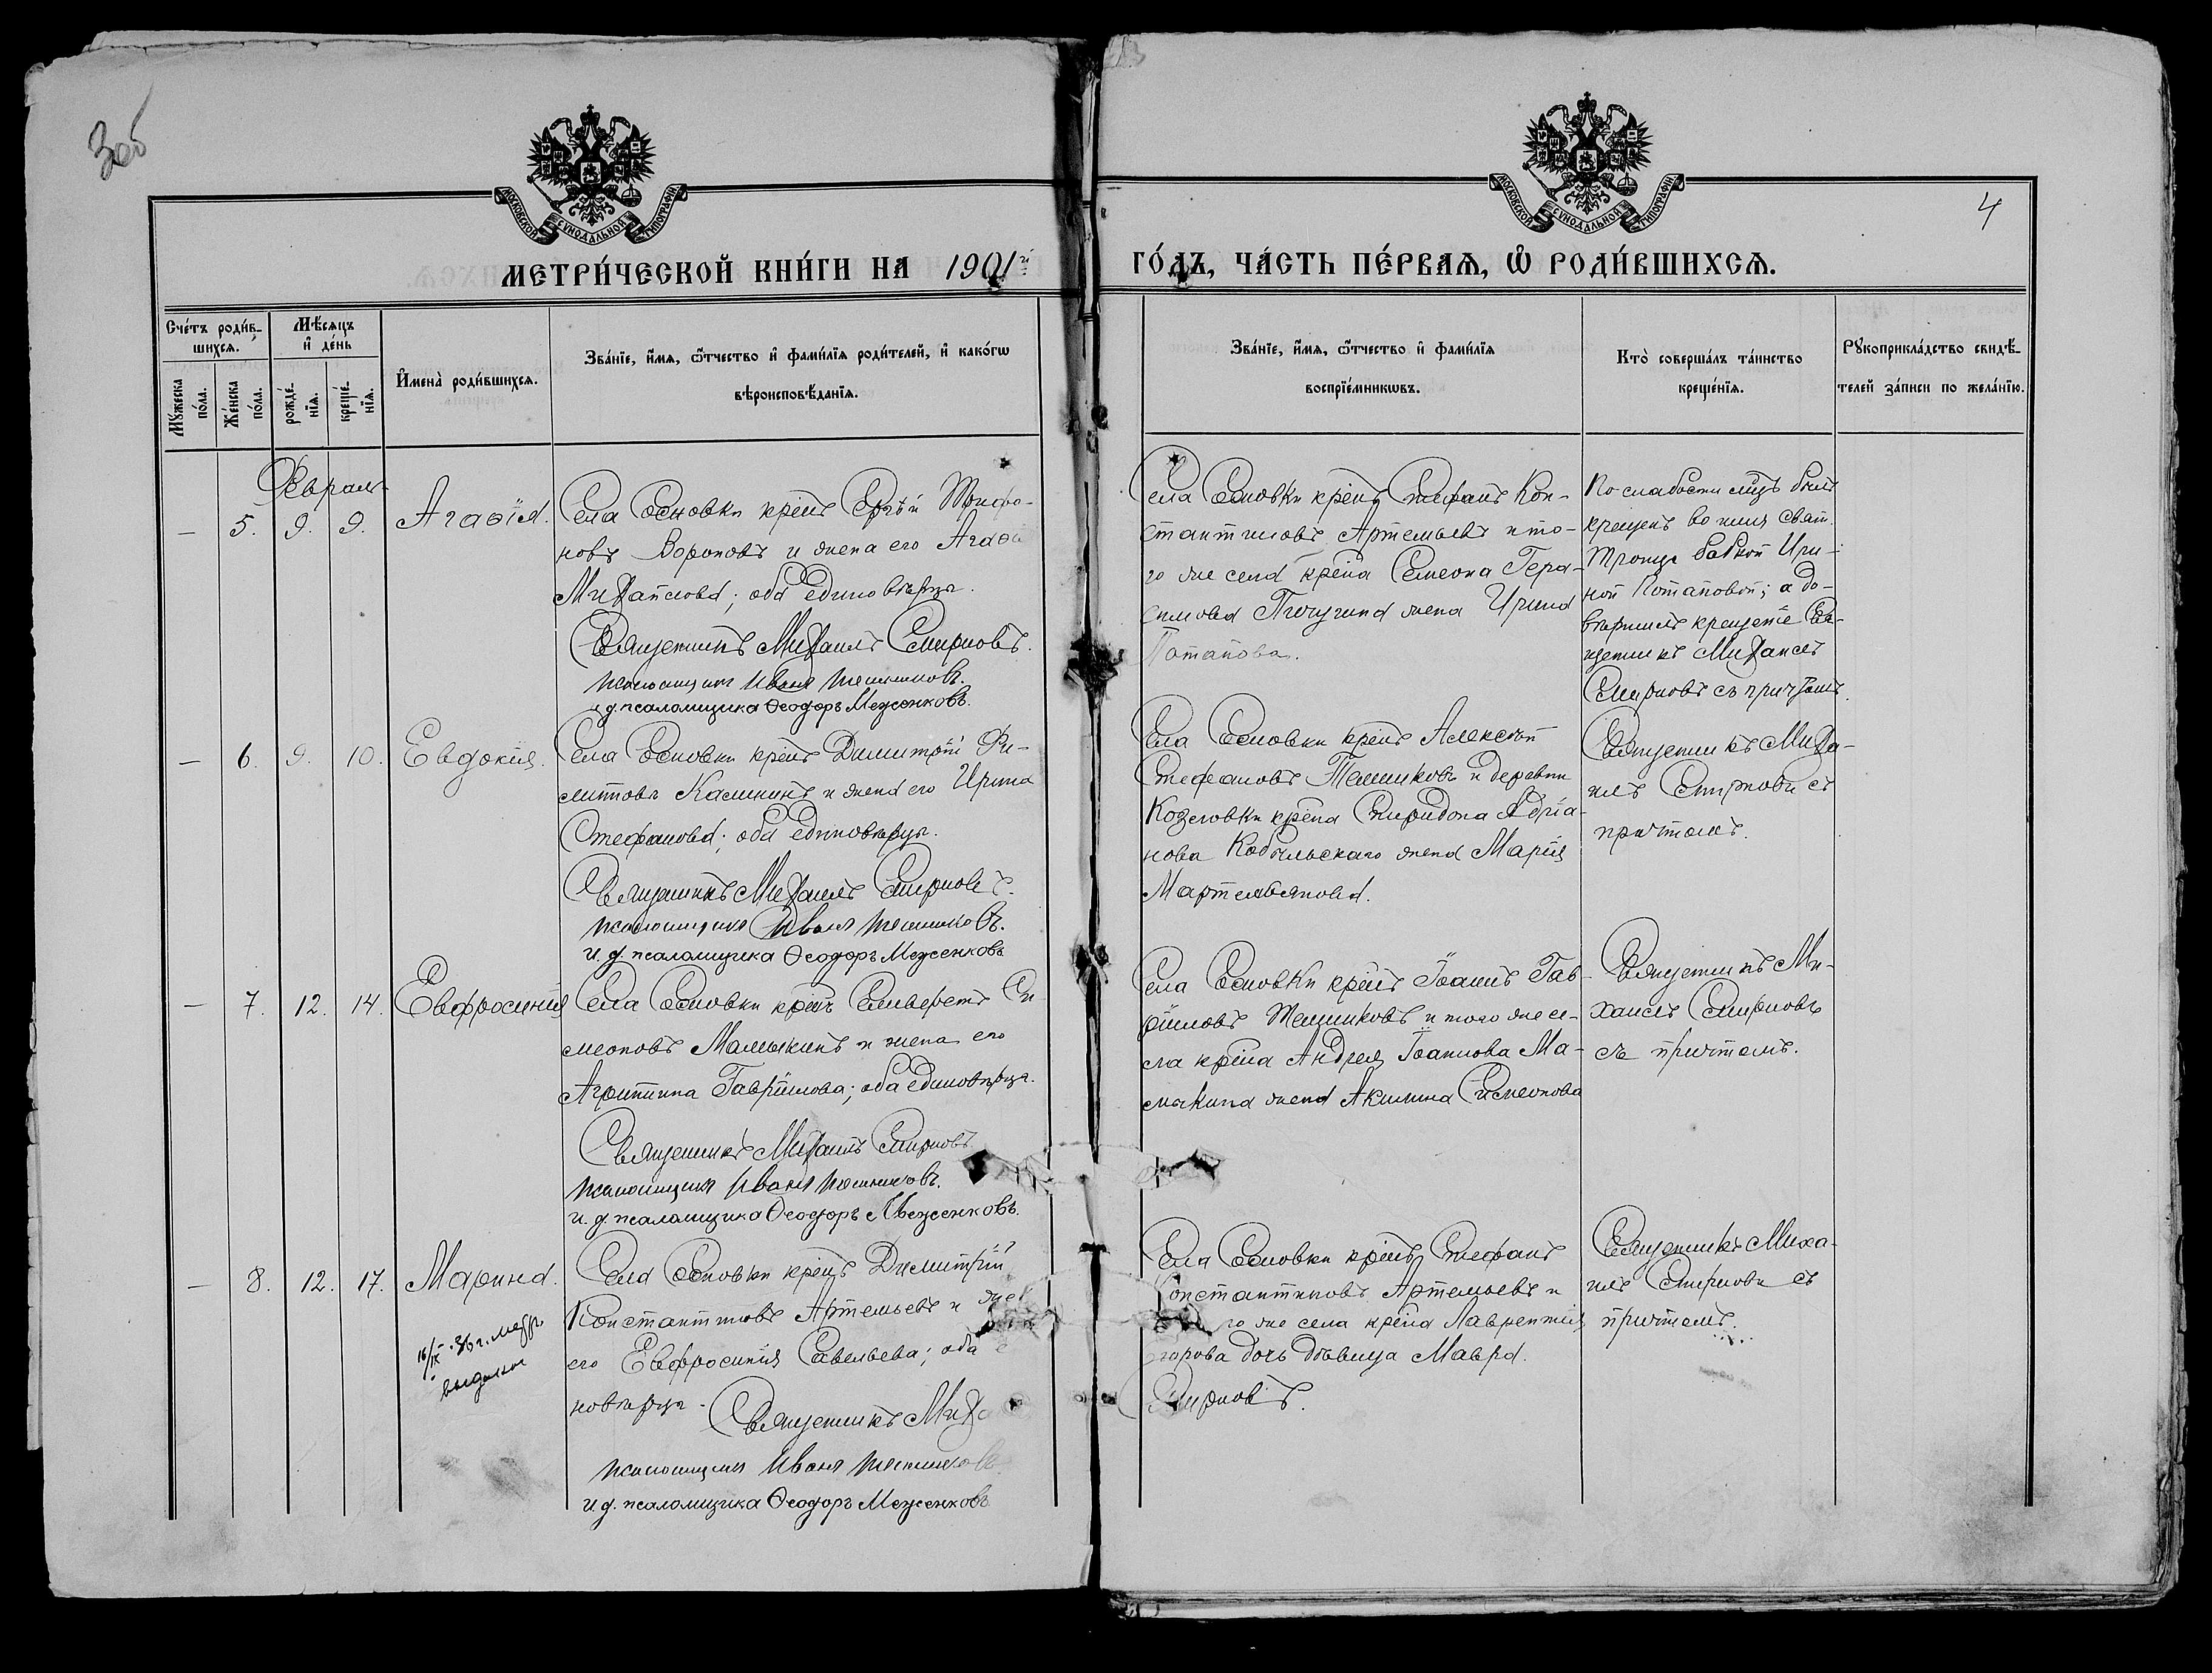 3об
4
МОСКОВСКОЙ СѴНОДАЛЬНОЙ ТИПОГРАФІИ
МОСКОВСКОЙ СѴНОДАЛЬНОЙ ТИПОГРАФІИ
МЕТРИ́ЧЕСКОЙ КНИ́ГИ НА 1901й ГО́ДЪ, ЧА́СТЬ ПЕ́РВАѦ, Ѿ РОДИ́ВШИХСѦ.
Сче́тъ роди́в-
шихсѧ.
Мꙋжеска по́ла.
Же́нска по́ла.
Мѣ́сѧцъ
и҆ де́нь
рожде́-
нїѧ.
креще́-
нїѧ.
И҆мена̀ роди́вшихсѧ.
Зва́нїе, и҆́мѧ, ѻ҆́тчество и҆ фами́лїѧ роди́телей, и҆ како́гѡ
вѣроисповѣ́данїѧ.
Зва́нїе, и҆́мѧ, ѻ҆́тчество и҆ фами́лїѧ
воспрїе́мникѡвъ.
Кто̀ соверша́лъ та́инство
креще́нїѧ.
Рꙋкоприкла́дство свидѣ́-
телей за́писи по жела́нїю.
Февраль
— 5. 9. 9. Агаѳія.
Села Сосновки крец Сергѣй Трифо-
новъ Вороновъ и жена его Агаѳі
Михаилова; оба единовѣрцы.
Священникъ Михаилъ Смирновъ.
Псаломщикъ Иванъ
и.д. псаломщика Ѳеодоръ Меженковъ.
Села Сосновки крец Стефанъ Кон-
стантиновъ Артемьевъ и то-
го же села крѣна Симеона Гера-
симова жена Ирина
Потапова.
По слабости лицъ былъ
крещенъ во имя Свят.
Троицы бабкой Ири-
ной Потаповой; а до-
вершилъ крещеніе Свя-
щенникъ Михаилъ
Смирновъ съ причтомъ.
— 6. 9. 10. Евдокія.
Села Сосновки крец Димитрій Фи-
липповъ Калининъ и жена его Ирина
Стефанова; оба единовѣрцы.
Священникъ Михаилъ Смирновъ.
Псаломщикъ Иванъ
и.д. псаломщика Ѳеодоръ Меженковъ
Села Сосновки крец Алексѣй
Стефановъ и деревни
Козловки крѣна Спиридона Адріа-
нова Кобыльскаго жена Марія
Мартемьянова.
Священникъ Миха-
илъ Смирновъ съ
причтомъ.
— 7. 12. 14. Евфросинія
Села Сосновки крец Сильверстъ Си-
меоновъ Мамыкинъ и жена его
Агриппина Гавріилова; оба единовѣрцы.
Священникъ Михаилъ Смирновъ
Псаломщикъ Иванъ
и.д. псаломщика Ѳеодоръ Меженковъ.
Села Сосновки крец Іоаннъ Гав-
ріиловъ и того же се-
ла крѣна Андрея Іоаннова Ма-
мыкина жена Акилина Симеонова
Священникъ Ми-
хаилъ Смирновъ
съ причтомъ.
— 8. 12. 17. Марина.
16/IX 36 г. метр.
выдана
Села Сосновки крец Димитрій
Константиновъ Артемьевъ и же
его Евфросинія Савельева; оба е
новѣрцы.
Священникъ Миха
Псаломщикъ Иванъ
и.д. псаломщика Ѳеодоръ Меженковъ
Села Сосновки крец Стефанъ
Константиновъ Артемьевъ и
го же села крѣна Лаврентія
горова дочь дѣвица Мавра.
Смирновъ.
Священникъ Миха-
илъ Смирновъ съ
причтомъ.